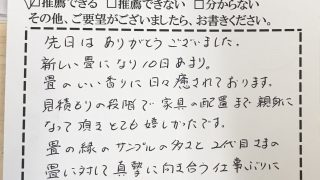 ☑推薦できる □推薦できない □分からない
その他、ご要望がございましたら、お書きください。
先日は ありがとうございました。
新しい畳になり10日あまり。
畳のいい香りに日々癒されております。
見積もりの段階で家具の配置まで親身に
なって頂きとても嬉しかったです。
畳の縁のサンプルの多さと2代目さまの
畳に対して真摯に向き合う仕事ぶりに